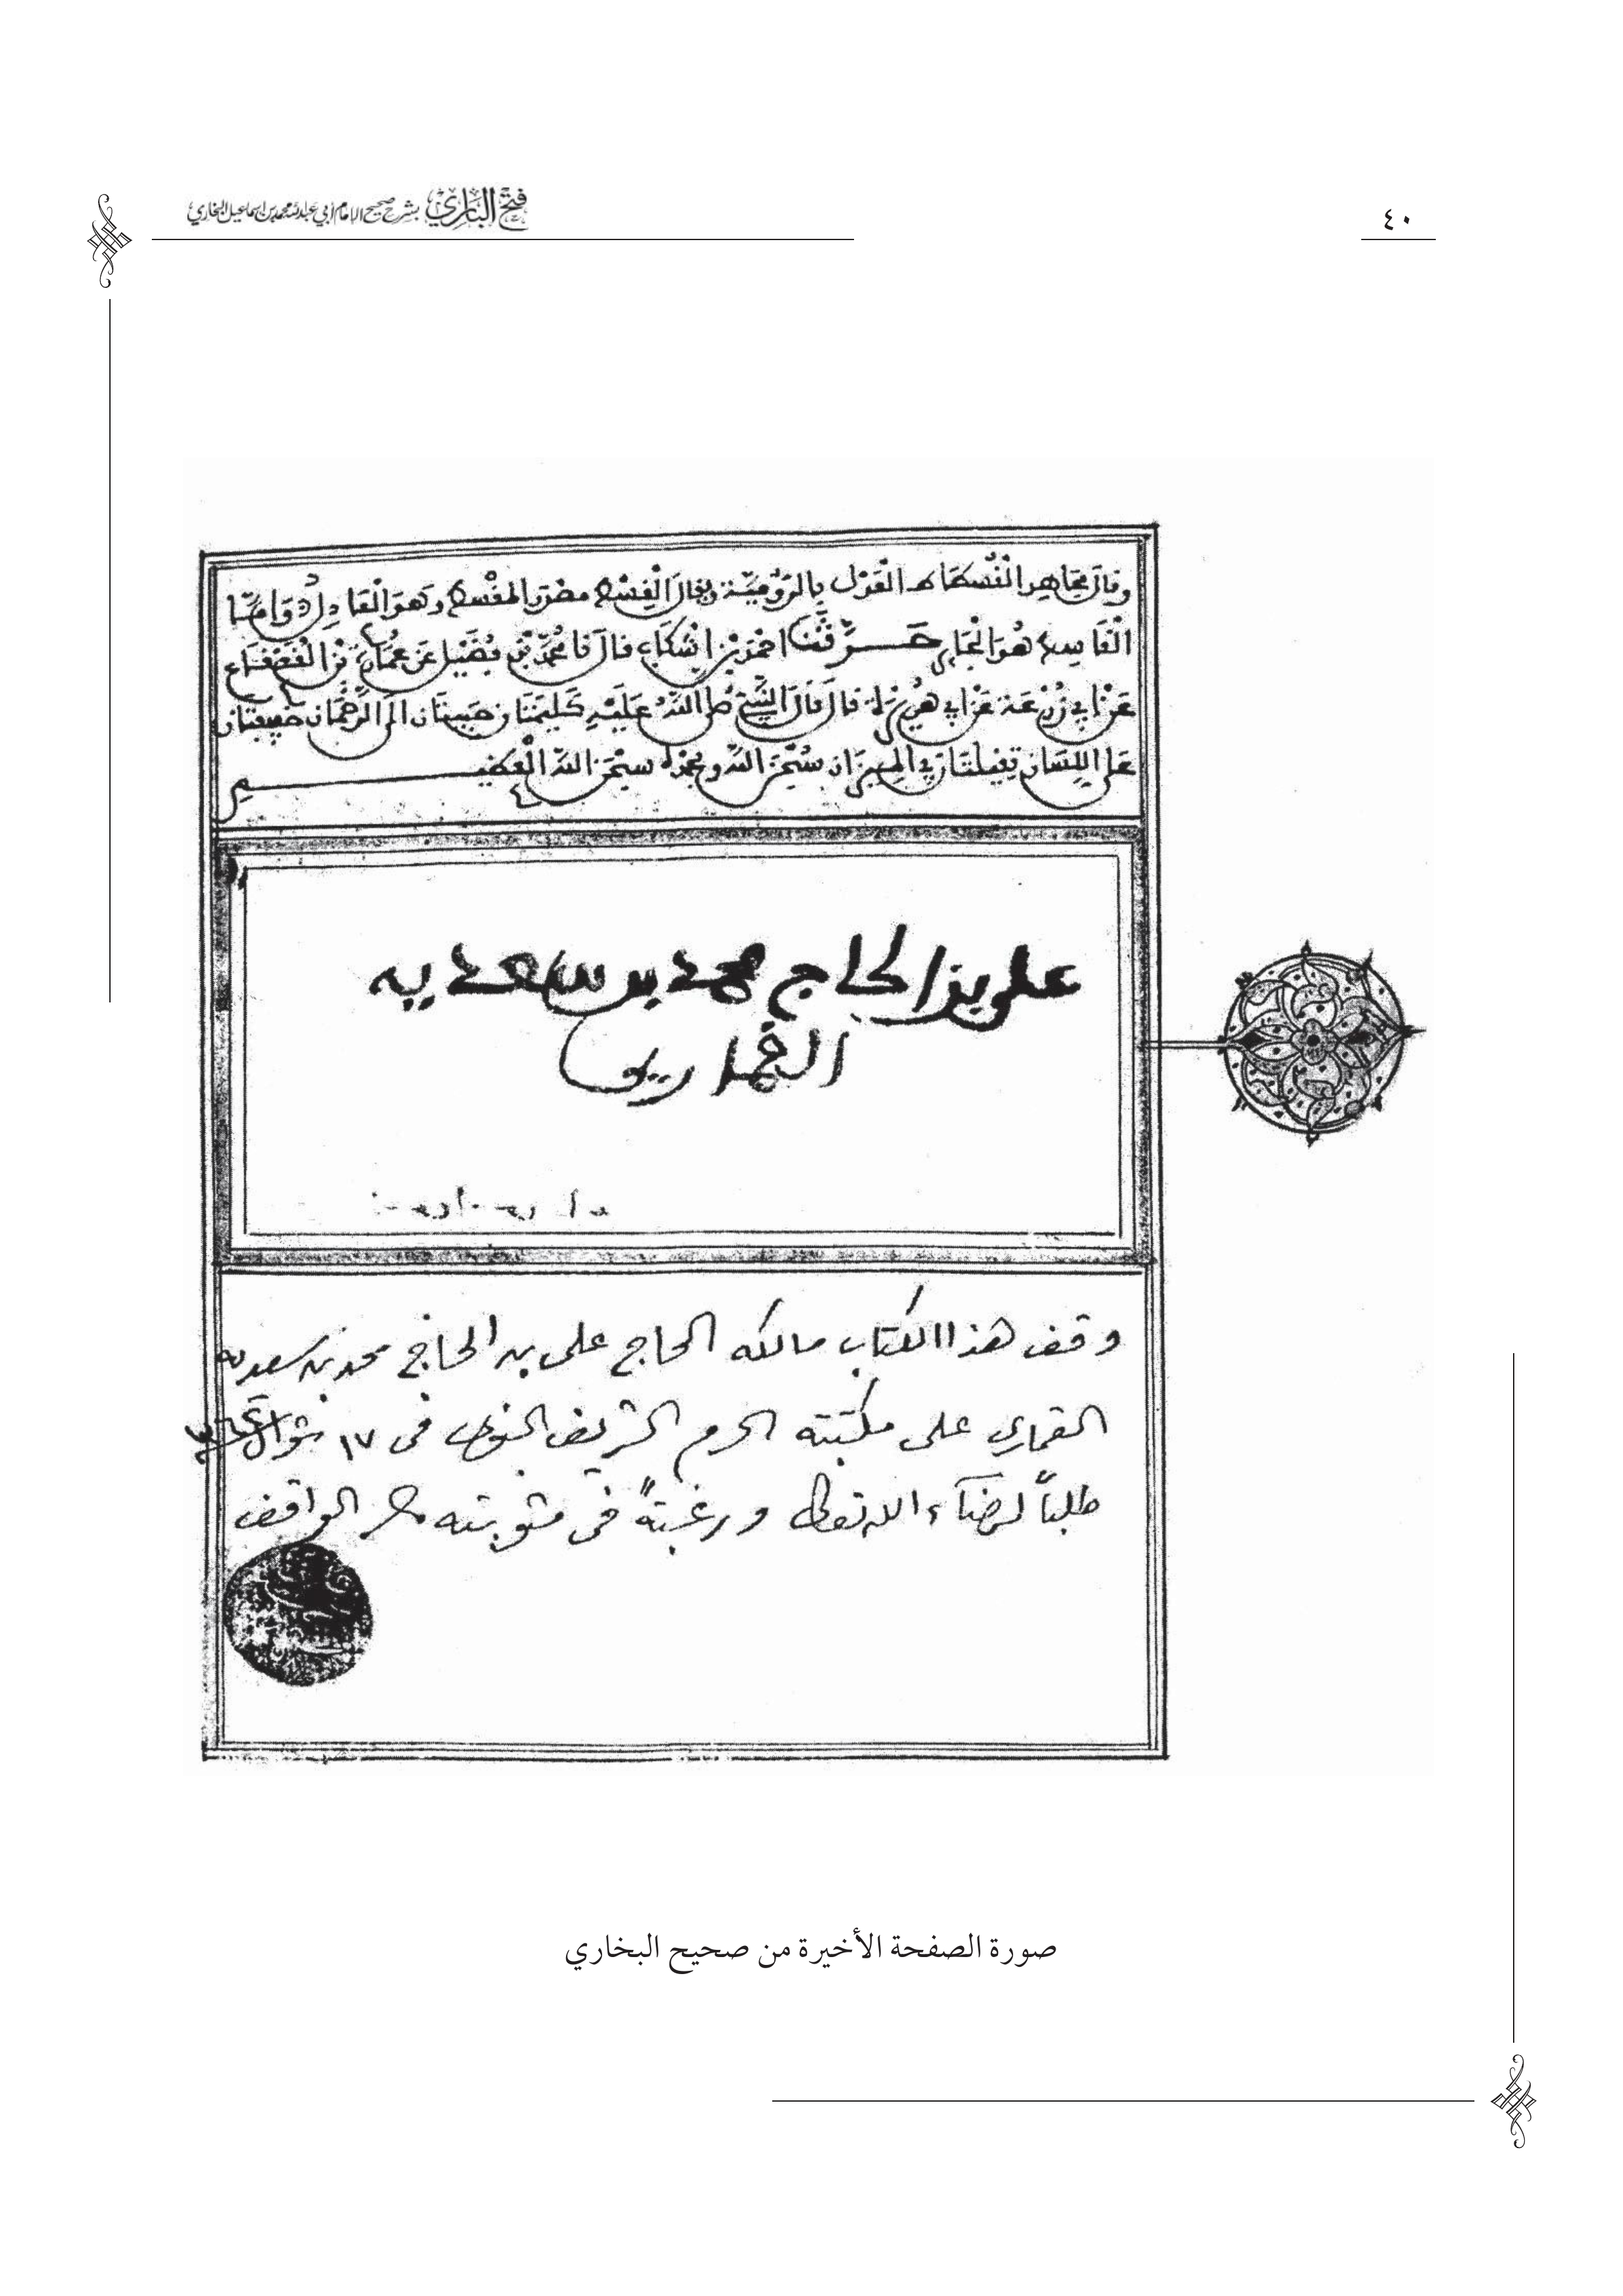 ٤٠
فتح الباري بشرح صحيح الإمام أبي عبد الله محمد بن إسماعيل البخاري
وقال مجاهد القسطاط العدل بالرومية ويقال القسط مصدر المقسط وهو العادل واما
القاسط هو الجاير حدثنا احمد بن اشكاب قال نا محمد بن فضيل عن عمارة بن القعقاع
عن ابي زرعة عن ابي هريرة قال قال النبي صلى الله عليه كليمتان حبيبتان الى الرحمان خفيفتان
على اللسان ثقيلتان في الميزان سبحن الله وبحمده سبحن الله العظيم
علي بن الحاج محمد بن سعديه
القماري
وقف هذا الكتاب مالكه الحاج على بن الحاج محمد بن سعديه
القماري على مكتبته الحرم الشريف النبوى فى ١٧ شوال
طلباً لرضآء الله تعالى ورغبتةً فى مثوبته الواقف
صورة الصفحة الأخيرة من صحيح البخاري